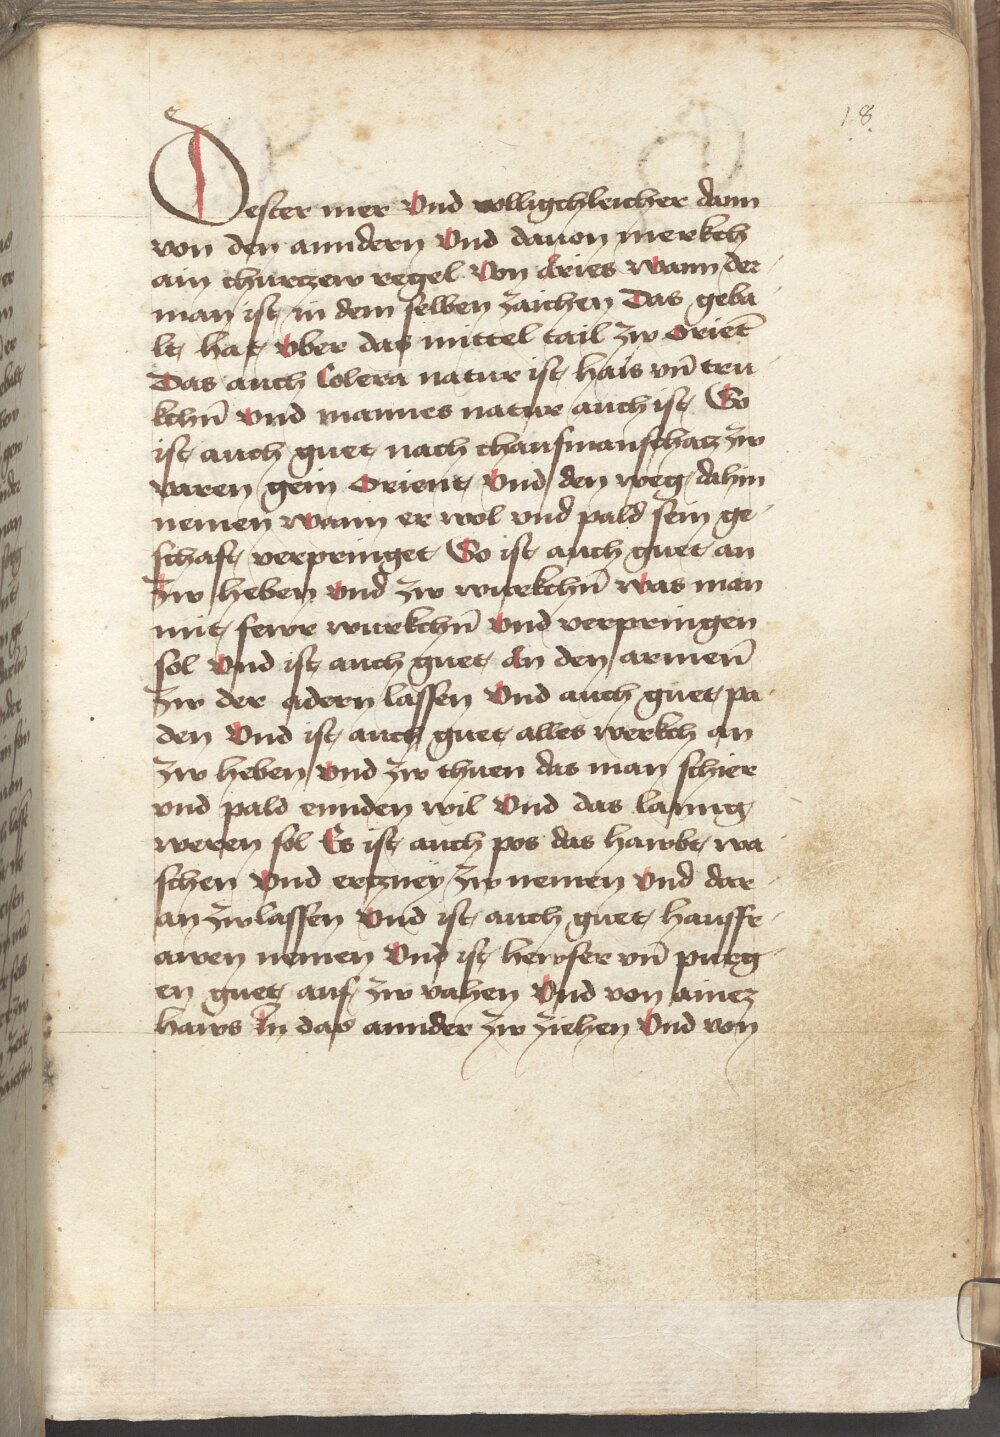 18
Dester mer Vnd volligchleicher dann
von den anndern Vnd dauon merkch
ain churtzew regel Von Aries Wann der
man ist in dem selben zaichen Das geba
lt hat Vber das mittel tail zw Orient̄
Das auch Colera natur ist hais vn̄ tru
kchn̄ Vnd mannes natwr auch ist So
ist auch guet nach chaufmanschatz zw
varen gein Orient Vnd den weg dahin
nemen wann er wol vnd pald sein ge
schaft verpringet So ist auch guet an
Zw heben Vnd zw wurkchn̄ was man
mit fewr wurkchn̄ Vnd verpringen
sol Vnd ist auch guet An den armen̄
zw der adern lassen Vnd auch guet pa
den Vnd ist auch guet alles werkch an
zw heben Vnd zw thuen das man schier
vnd pald ennden wil Vnd das lanng
weren sol Es ist auch pos das hawbt wa
schen Vnd ertzney zw nemen Vnd dar
an zw lassen Vnd ist auch guet hausfr
awen nemen Vnd ist hewser vn̄ purg
en guet auf zw vahen Vnd von ainez
haws In das annder zw ziehen Vnd von